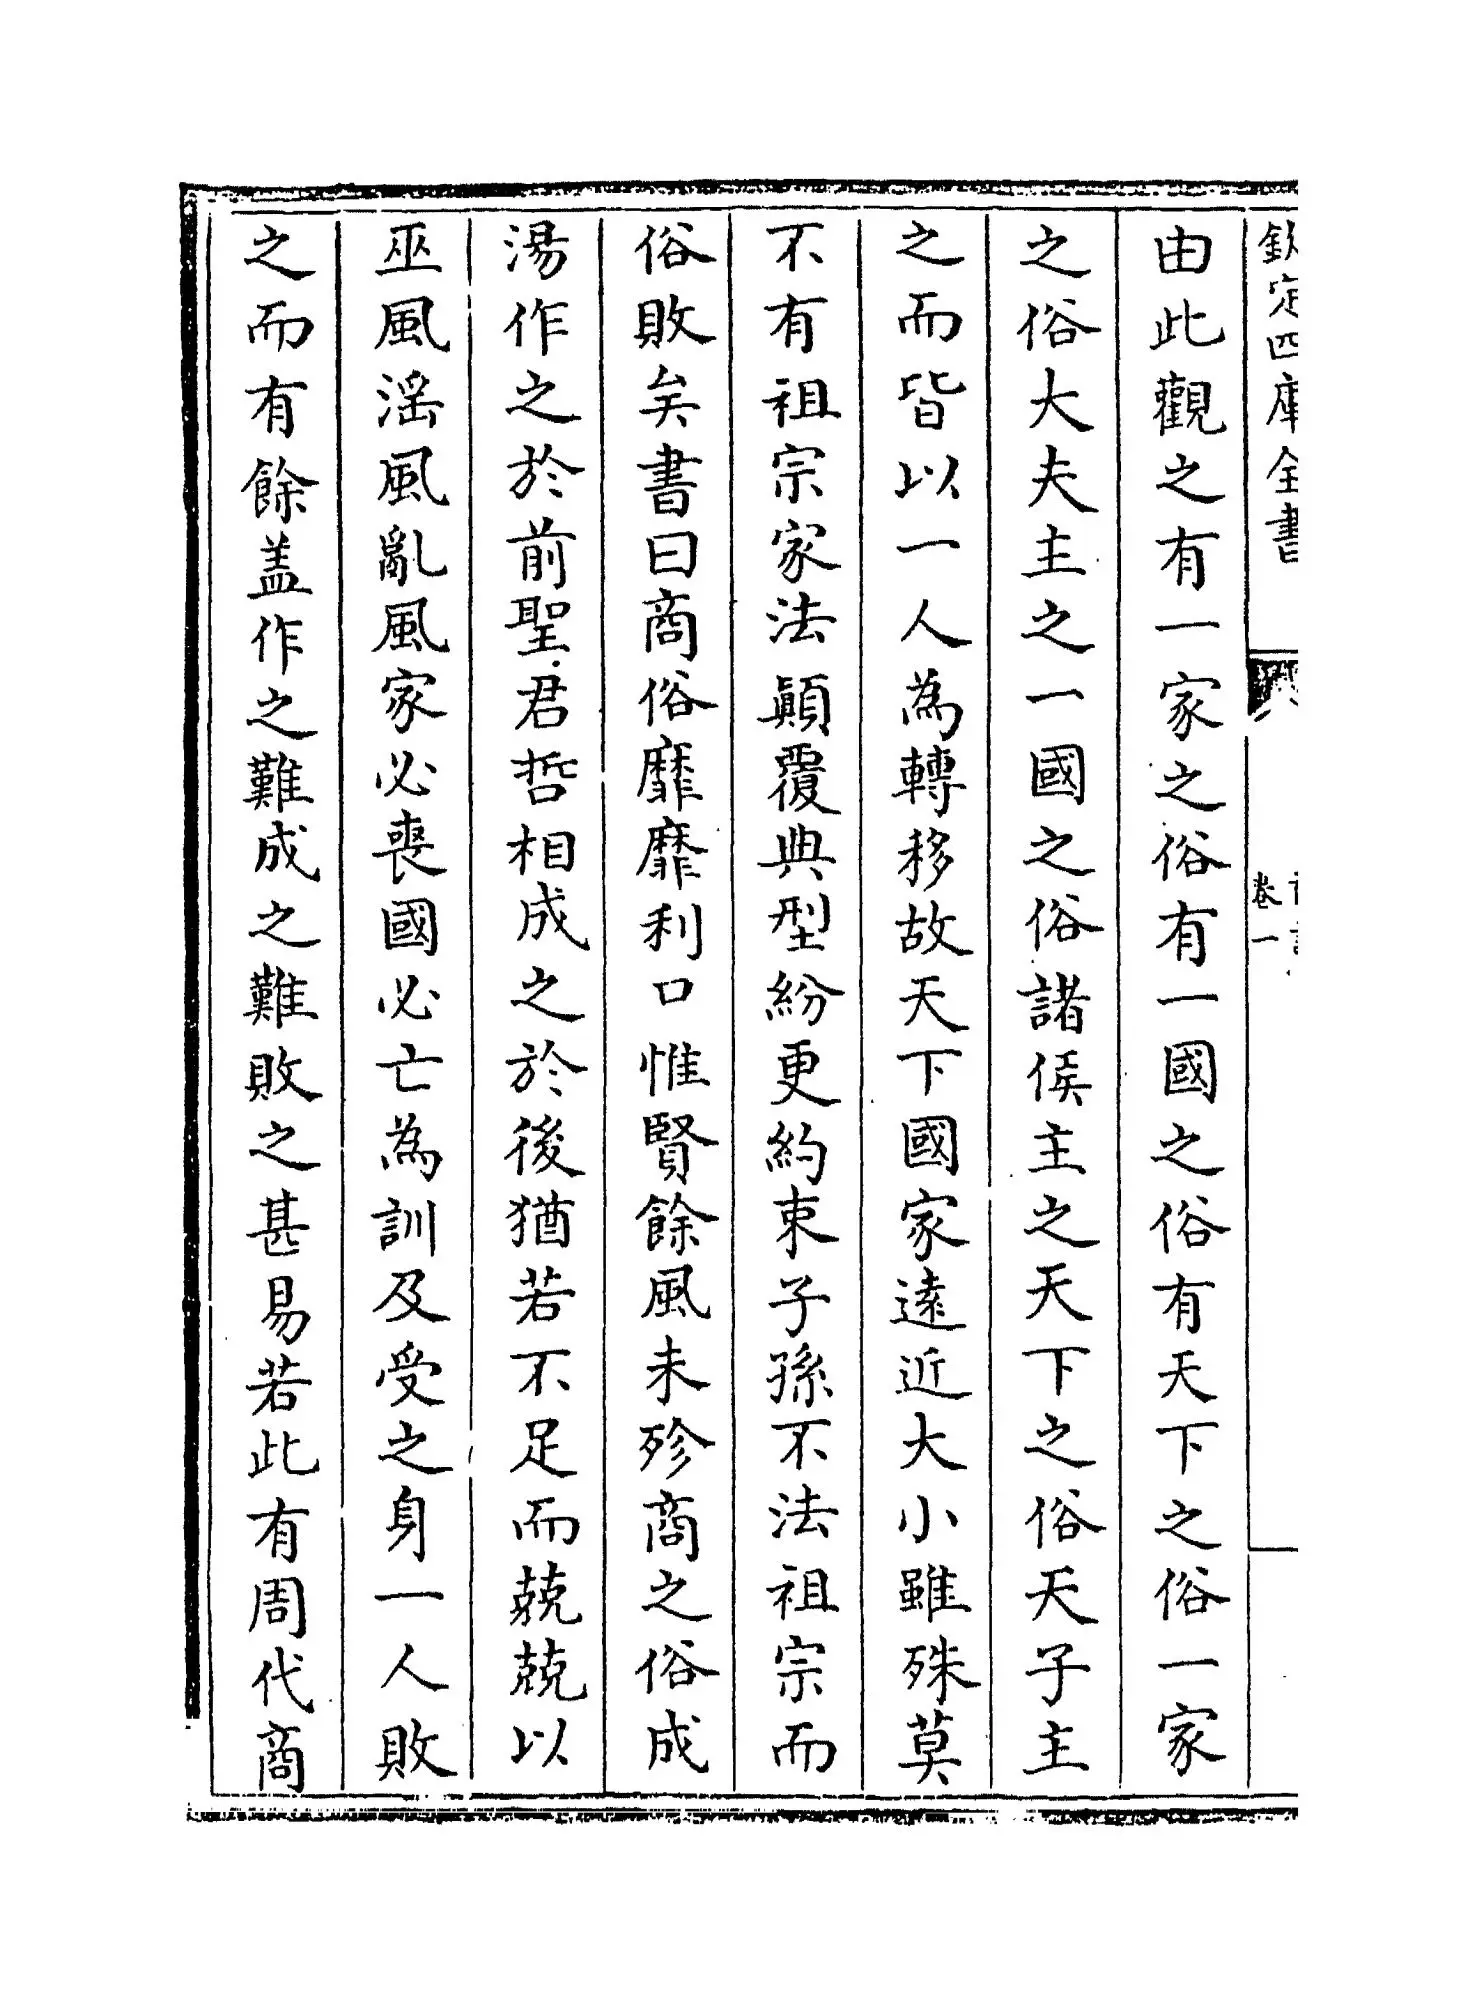 欽定四庫全書
卷一
由此觀之有一家之俗有一國之俗有天下之俗一家
之俗大夫主之一國之俗諸侯主之天下之俗天子主
之而皆以一人為轉移故天下國家遠近大小雖殊莫
不有祖宗家法顛覆典型紛更約束子孫不法祖宗而
俗敗矣書曰商俗靡靡利口惟賢餘風未殄商之俗成
湯作之於前聖君哲相成之於後猶若不足而兢兢以
巫風滛風亂風家必喪國必亡為訓及受之身一人敗
之而有餘盖作之難成之難敗之甚易若此有周代商